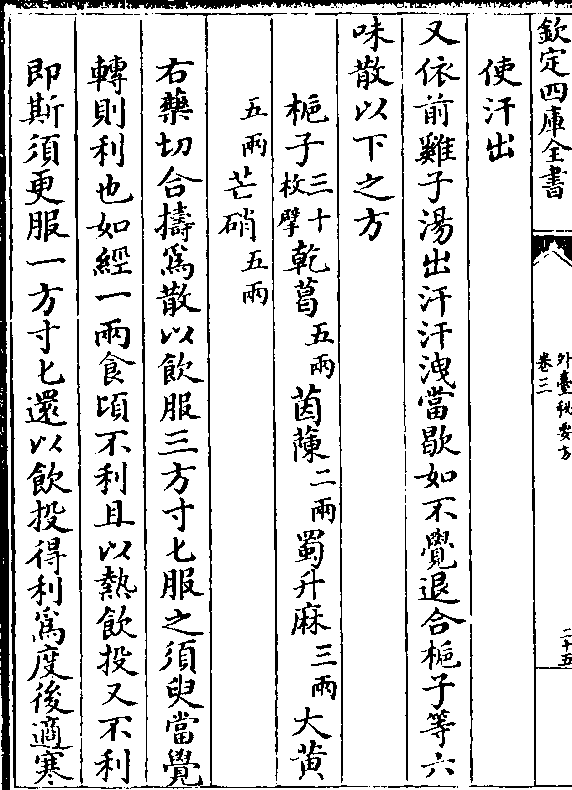 欽定四庫全書
外臺秘要方
卷三
二十五
使汗出
又依前雞子湯出汗汗洩當歇如不覺退合梔子等六
味散以下之方
梔子三十枚擘乾葛五兩茵蔯二兩蜀升麻三兩大黄
五兩芒硝五兩
右藥切合擣為散以飲服三方寸匕服之須臾當覺
轉則利也如經一兩食頃不利且以熱飲投又不利
即斯須更服一方寸匕還以飲投得利為度後適寒